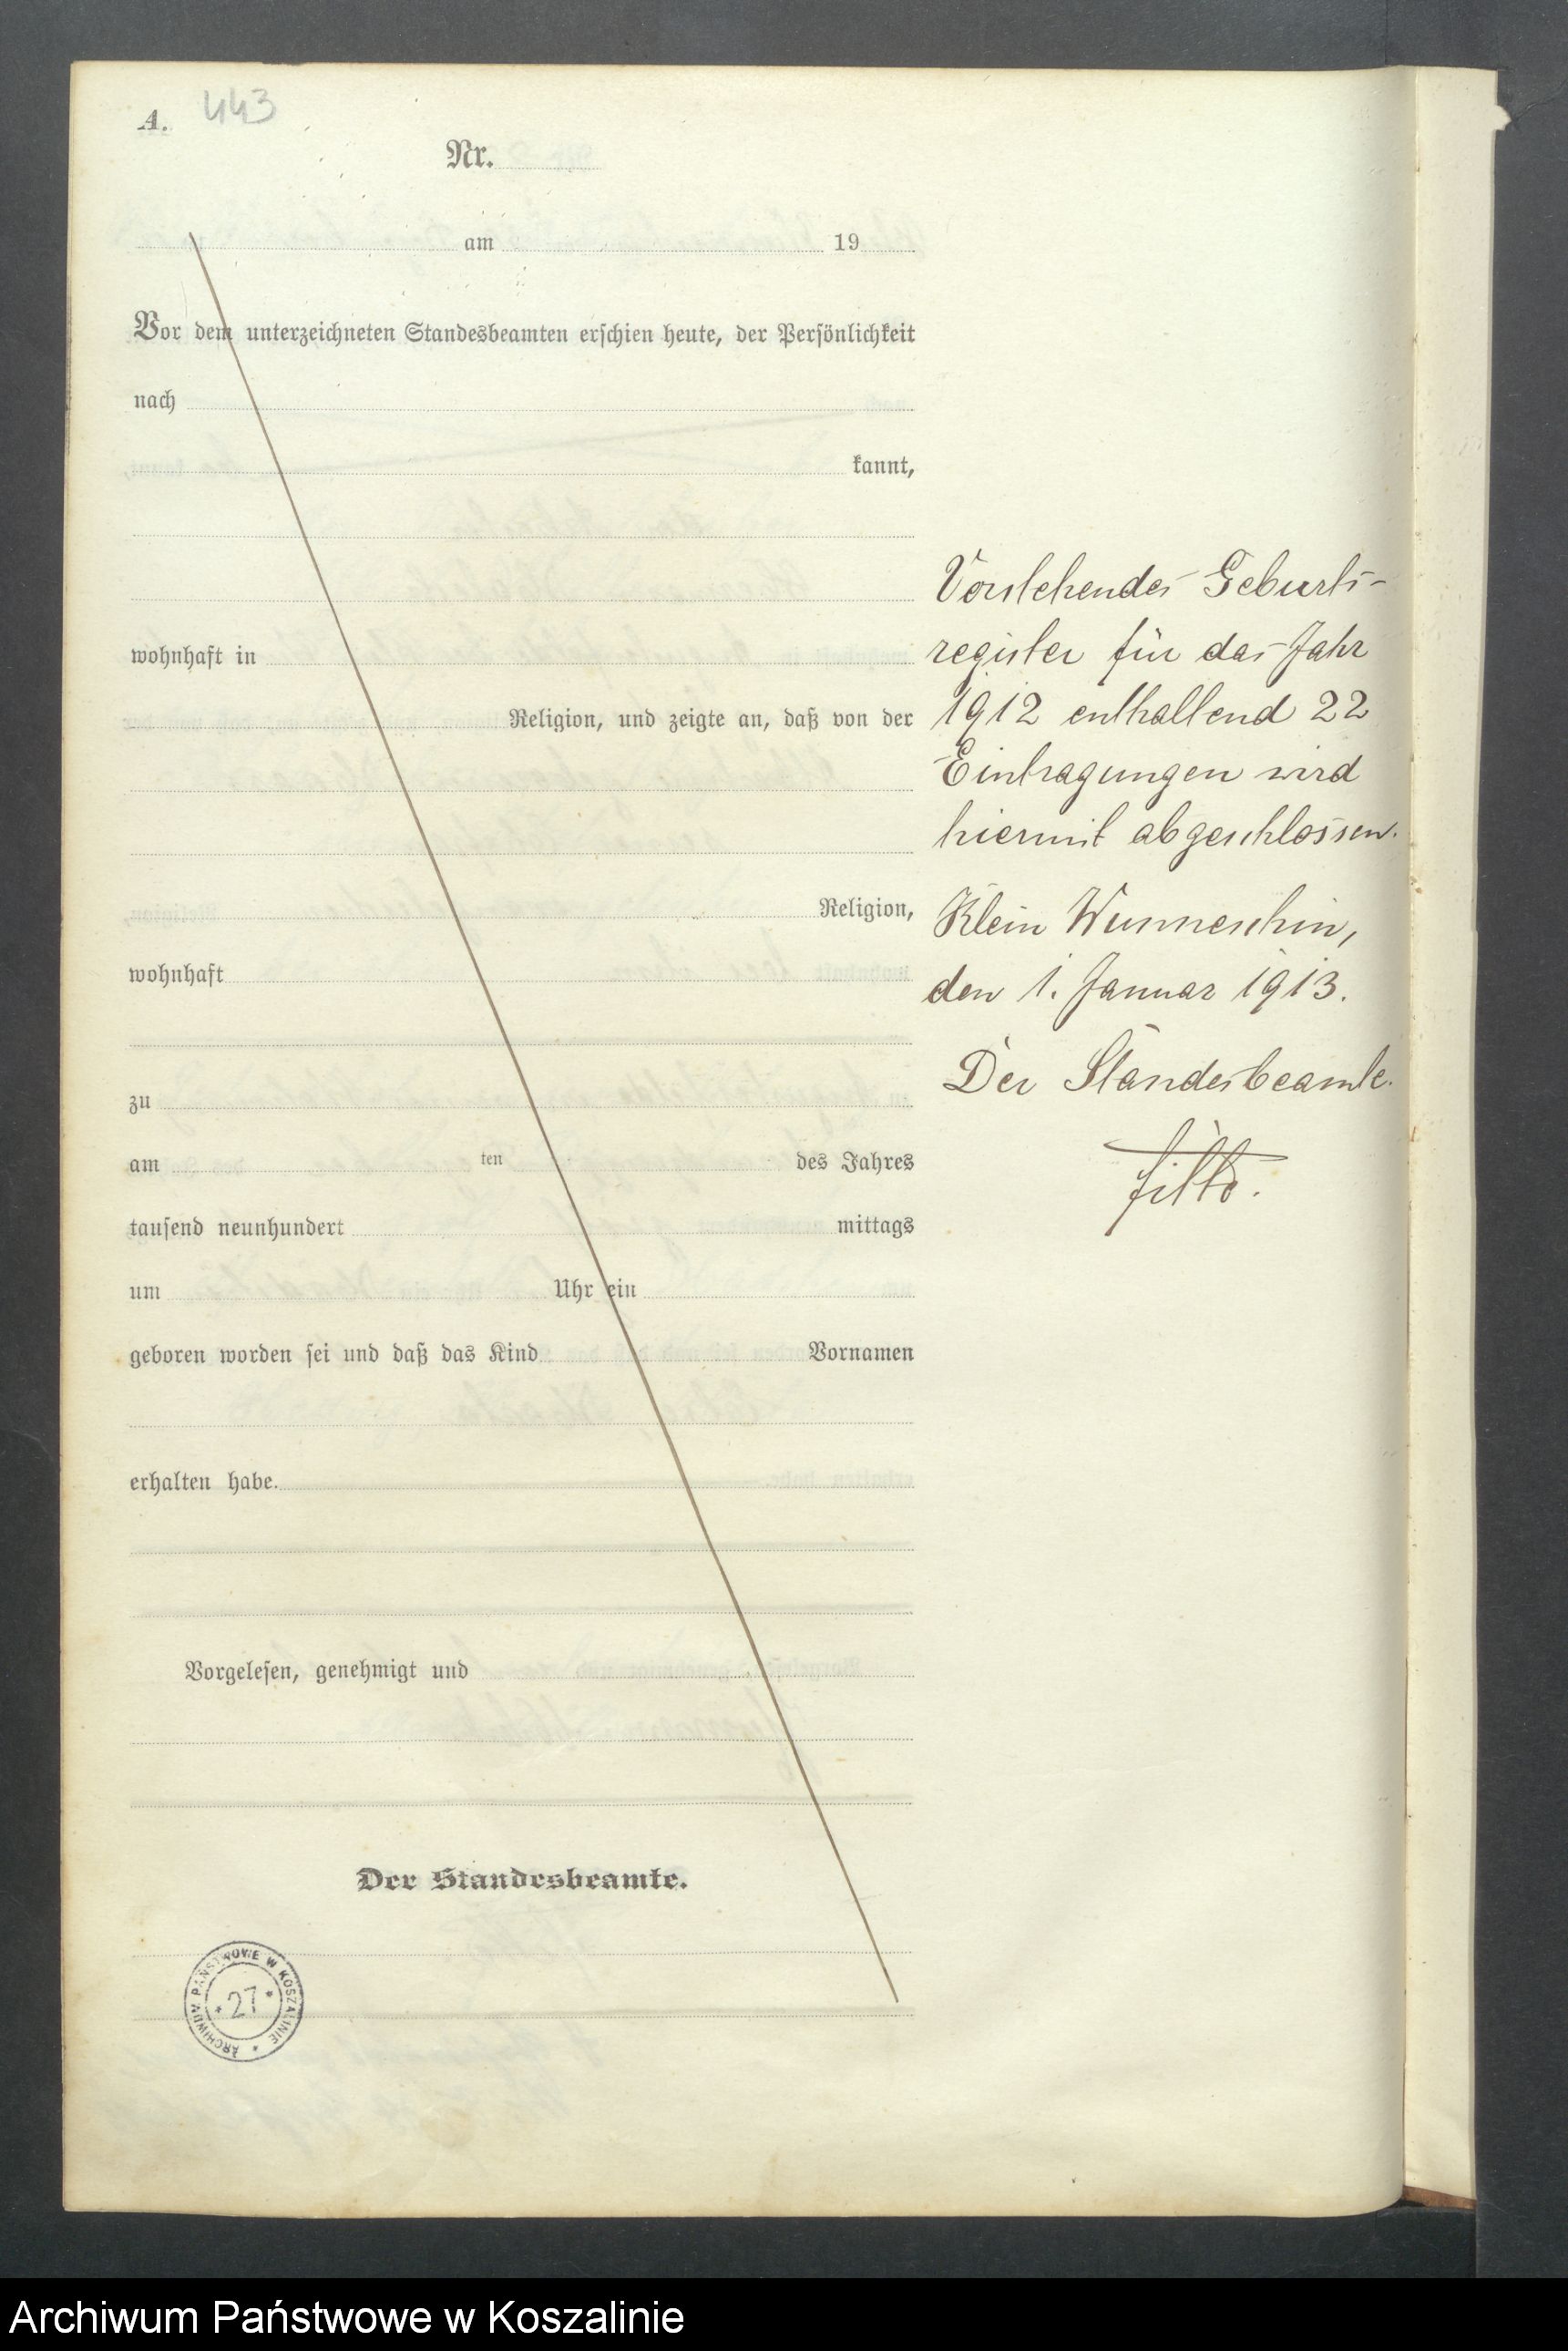 A. 443
Nr.
am 19
Vor dem unterzeichneten Standesbeamten erschien heute, der Persönlichkeit
nach
kannt,
wohnhaft in
Religion, und zeigte an, daß von der
Religion,
wohnhaft
zu
am ten des Jahres
tausend neunhundert mittags
um Uhr ein
geboren worden sei und daß das Kind Vornamen
erhalten habe.
Vorgelesen, genehmigt und
Der Standesbeamte.
Vorstehendes Geburts-
register für das Jahr
1912 enthaltend 22
Eintragungen wird
hiermit abgeschlossen.
Klein Wunneschin,
den 1. Januar 1913.
Der Standesbeamte.
ARCHIWUM PAŃSTWOWE W KOSZALINIE
* 27 *
Archiwum Państwowe w Koszalinie